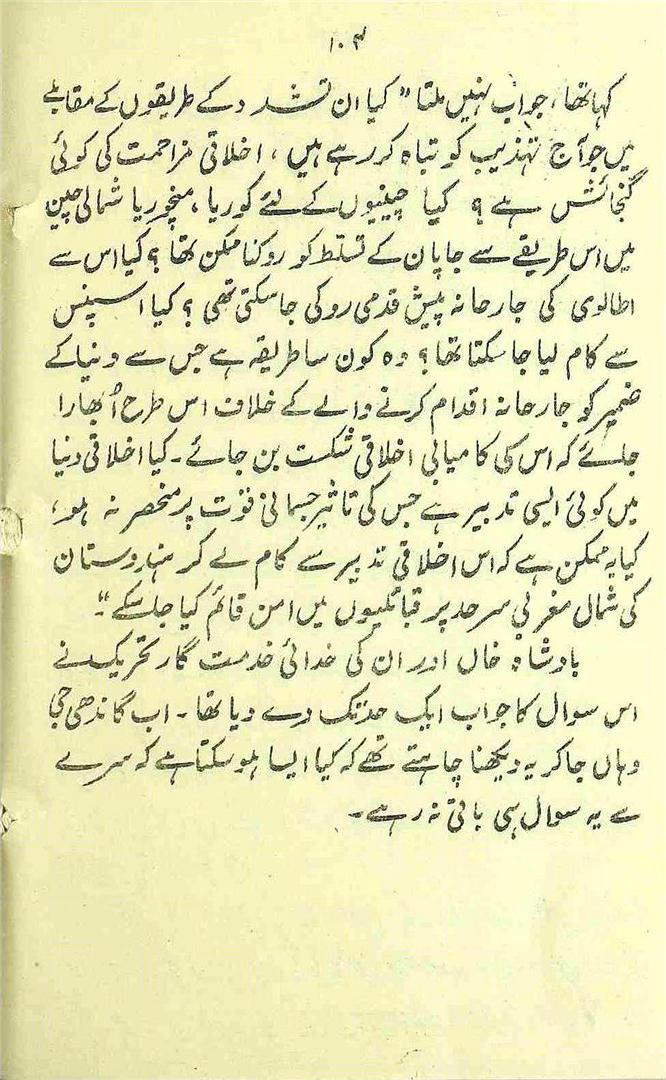 ۱۰۴
کہا تھا، جواب نہیں ملتا” کیا ان تشدد کے طریقوں کے مقابلے
میں جو آج تہذیب کو تباہ کر رہے ہیں، اخلاقی مزاحمت کی کوئی
گنجائش ہے؟ کیا چینیوں کے لئے کوریا، منچوریا شمالی چین
میں اس طریقے سے جاپان کے تسلط کو روکنا ممکن تھا؟ کیا اس سے
اطالوی کی جارحانہ پیش قدمی روکی جا سکتی تھی؟ کیا اسپنس
سے کام لیا جا سکتا تھا؟ وہ کون سا طریقہ ہے جس سے دنیا کے
ضمیر کو جارحانہ اقدام کرنے والے کے خلاف اس طرح اُبھارا
جائے کہ اس کی کامیابی اخلاقی شکست بن جائے۔ کیا اخلاقی دنیا
میں کوئی ایسی تدبیر ہے جس کی تاثیر جسمانی قوت پر منحصر نہ ہو،
کیا یہ ممکن ہے کہ اس اخلاقی تدبیر سے کام لے کر ہندوستان
کی شمال مغربی سرحد پر قبائلیوں میں امن قائم کیا جا سکے“۔
بادشاہ خاں اور ان کی خدائی خدمت گار تحریک نے
اس سوال کا جواب ایک حد تک دے دیا تھا۔ اب گاندھی جی
وہاں جا کر یہ دیکھنا چاہتے تھے کہ کیا ایسا ہو سکتا ہے کہ سرے
سے یہ سوال ہی باقی نہ رہے۔